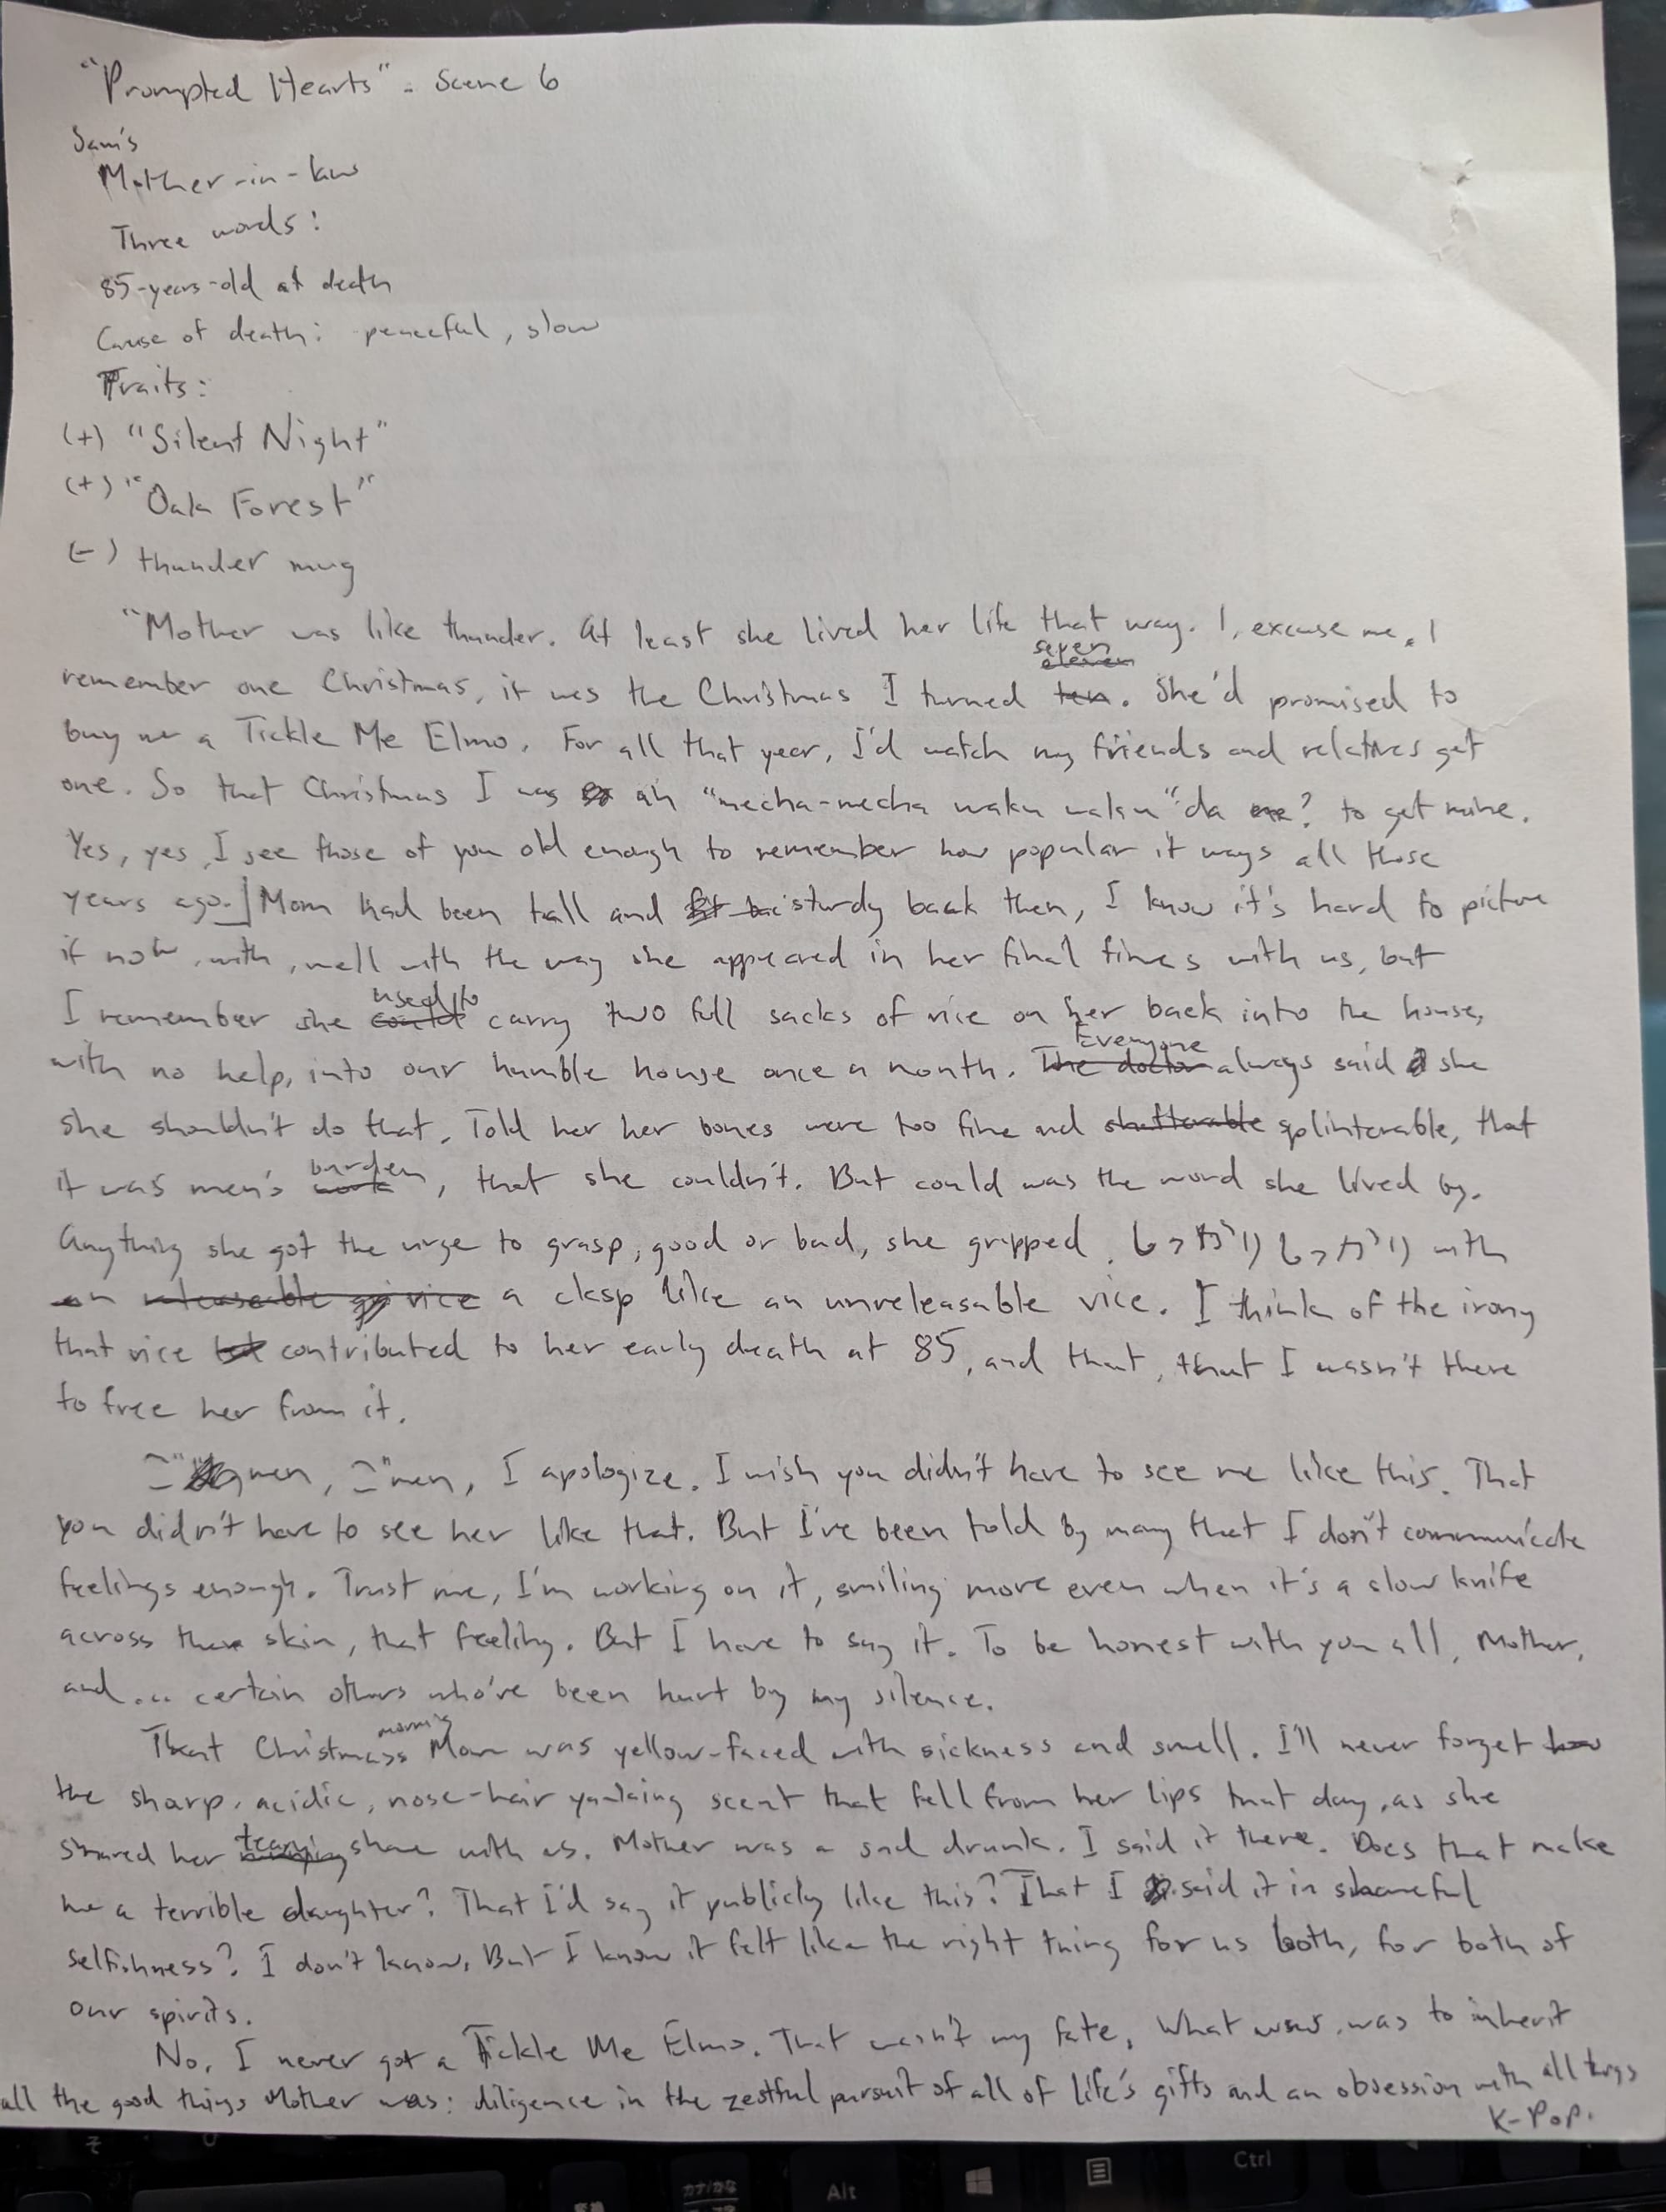 "Prompted Hearts" - Scene 6
Sam's
Mother-in-law
Three words:
85-years-old at death
Cause of death: peaceful, slow
Traits:
(+) "Silent Night"
(+) "Oak Forest"
(-) thunder mug
"Mother was like thunder. At least she lived her life that way. I, excuse me, I
seven
eleven
remember one Christmas, it was the Christmas I turned ten. She'd promised to
buy me a Tickle Me Elmo. For all that year, I'd watch my friends and relatives get
one. So that Christmas I was ah "mecha-mecha waku waku" da ne? to get mine.
Yes, yes, I see those of you old enough to remember how popular it ways all those
years ago. Mom had been tall and sturdy back then, I know it's hard to picture
it now, with, well with the way she appeared in her final times with us, but
used to
I remember she could carry two full sacks of rice on her back into the house,
Everyone
with no help, into our humble house once a month. The doctor always said she
she shouldn't do that. Told her her bones were too fine and shatterable splinterable, that
burden
it was men's work, that she couldn't. But could was the word she lived by.
Anything she got the urge to grasp, good or bad, she gripped, しっカリしっカリ with
an releaseable vice a clasp like an unreleasable vice. I think of the irony
that vice contributed to her early death at 85, and that, that I wasn't there
to free her from it.
ごmen, ごmen, I apologize. I wish you didn't have to see me like this. That
you didn't have to see her like that. But I've been told by many that I don't communicate
feelings enough. Trust me, I'm working on it, smiling more even when it's a slow knife
across skin, that feeling. But I have to say it. To be honest with you all, Mother,
and... certain others who've been hurt by my silence.
morning
That Christmas Mom was yellow-faced with sickness and smell. I'll never forget how
the sharp, acidic, nose-hair yanking scent that fell from her lips that day, as she
shared her shame with us. Mother was a sad drunk. I said it there. Does that make
me a terrible daughter? That I'd say it publicly like this? That I said it in shameful
selfishness? I don't know, But I know it felt like the right thing for us both, for both of
our spirits.
No, I never got a Tickle Me Elmo. That wasn't my fate. What was, was to inherit
all the good things Mother was: diligence in the zestful pursuit of all of life's gifts and an obsession with all things
K-Pop.
そ
カタカナ
Alt
Ctrl